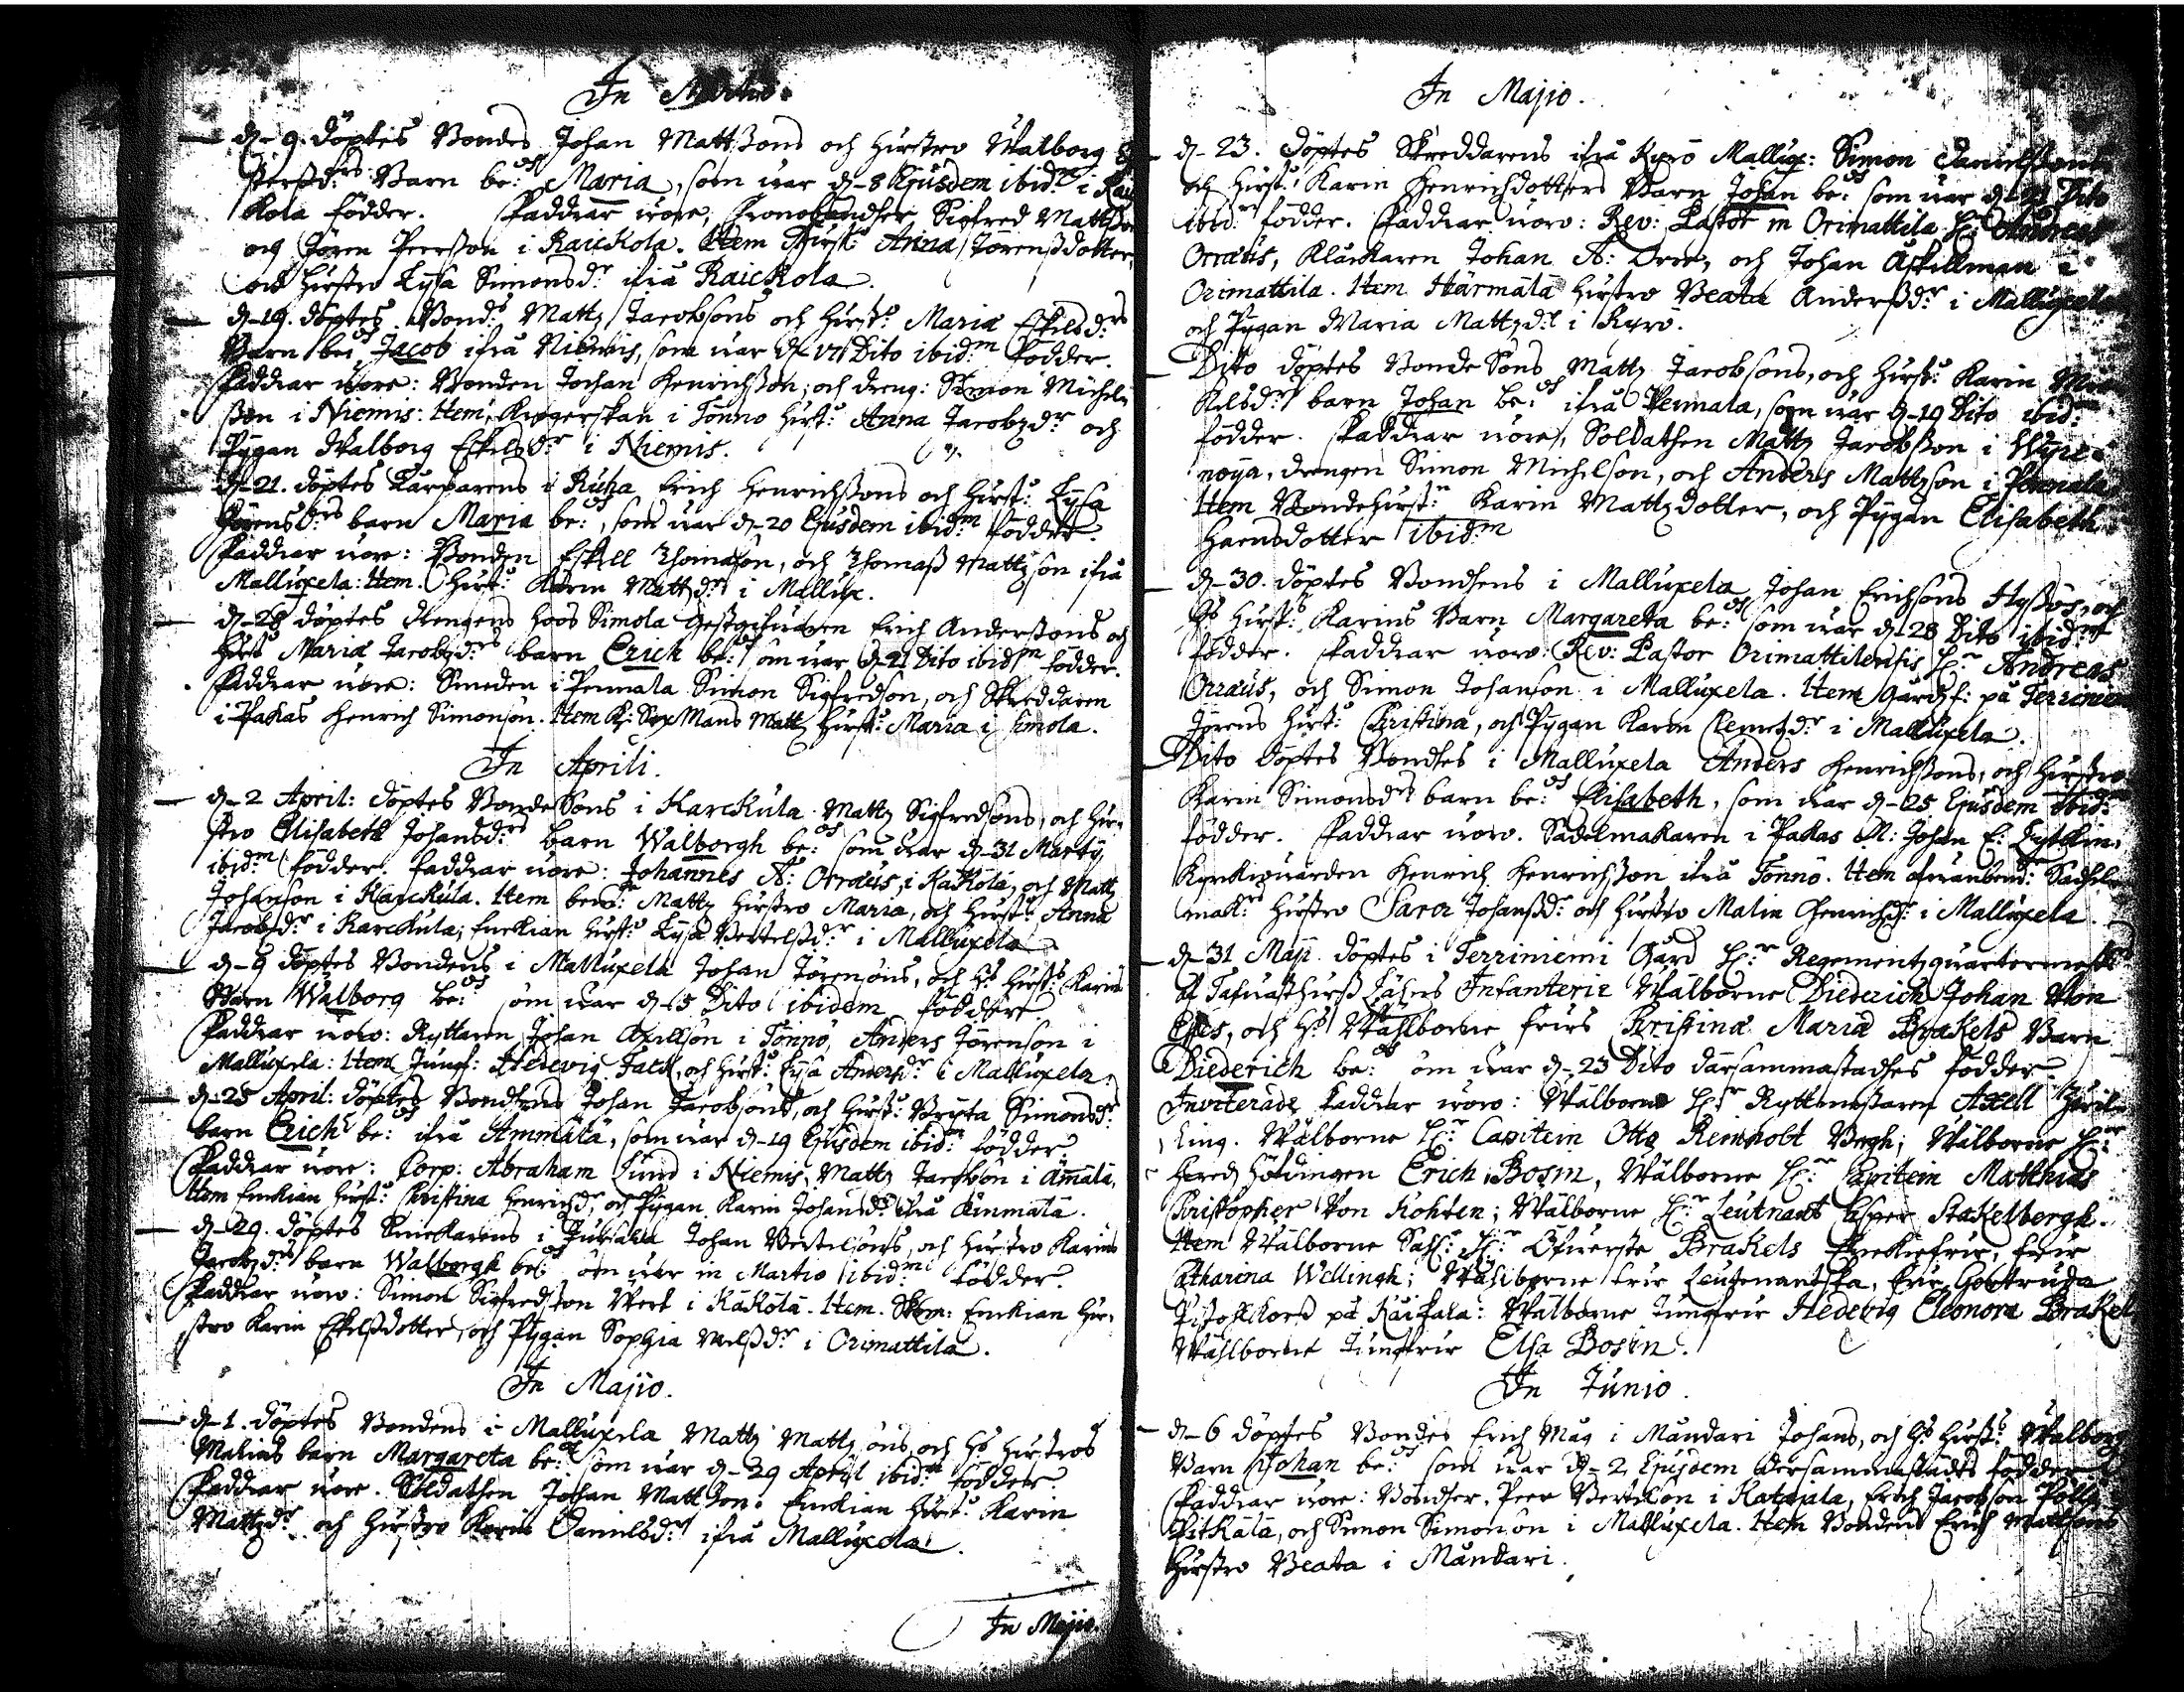 In Martio.
d. 9. döptes Bondes Johan Mattßons och hustro Walborg
rs Barn be:d Maria, som war d. 8 Ejusdem ibid:m i Rai
kola födder. Faddrar wore, Sigfred Mattßon
och Jören Peersson i Raickola. Item hust: Anna Jörenßdotter,
och hustro Lysa Simonsd:r ifrå Raickola.
d. 19. döptes Bond:s Mattz Jacobsons och hust: Maria Eskilsd:rs
Barn be:d Jacob ifrå Niemis, som war d. 17 Dito ibid:m födder.
Faddrar wore: Bonden Johan Henrichßon, och dreng: Simon Michels
ßon i Niemis: Item, Krögerskan i Tönno hust: Anna Jacobzd:r och
Pygan Walborg Eskilsd:r i Niemis.
d. 21. döptes i Ruha Erich Henrichßons och hust: Lysa
Jörensd:rs barn Maria be:d, som war d. 20 Ejusdem ibid:m födder.
Faddrar wore: Bonden Eskell Thomason, och Thomaß Mattzson ifrå
Mallusela: Item. hust: Karin Mattzd:r i Mallus.
d. 28 döptes drengens hoos Simola Gestgifwaren Erich Anderßons och
hust: Maria Jacobzd:rs barn Erich be:d som war d. 21 Dito ibid:m födder.
Faddrar wore: Smeden i Pennala Simon Sigfredson, och Skreddaren
i Pakas Henrich Simonson. Item K: Sex Mans Mattz hust: Maria i Simola.
In Aprili.
d. 2 April: döptes Bonde Sons i Karckula Mattz Sigfredsons, och hu-
stro Elisabeth Johansd:rs barn Walborgh be:d som war d. 31 Martij
ibid:m födder. Faddrar wore: Johannes A: Orræus, i Käkölä, och Mattz
Johanson i Karckula. Item bem:r Mattz hustro Maria, och hust: Anna
Jacobsd:r i Karckula, Enckian hust: Lysa Bertelßd:r i Mallusela
d. 9 döptes Bondens i Mallusela Johan Jörensons, och hs hust: Karins
Barn Walborg be:d som war d. 5 Dito ibidem födder
Faddrar wore: Ryttaren Johan Axellson i Tönnö, Anders Jörenson i
Mallusela: Item Jungf: Hedevig Falck, och hust: Lysa Andersd:r i Mallusela.
d. 25 April: döptes Bondhens Johan Jacobsons, och hust: Brijta Simonsd:r
barn Erich be:d ifrå Ammälä, som war d. 19 Ejusdem ibid:m födder.
Faddrar wore: Corp: Abraham Lund i Niemis, Mattz Jacobson i Amälä,
Item Enckian hust: Christina Henrichsd:r, och Pygan Karin Johansd:r ifrå
d. 29. döptes i Johan Bertelsons, och hustro Karins
Jacobzd:rs barn Walborgh be:d som war in Martio ibid:m födder.
Faddrar wore: Simon Sigfredßon Wert i Käkölä. Item. Enckian hu-
stro Karin Eskelßdotter, och Pygan Sophia Nilsßd:r i Orimattila.
In Majio.
d. 1. döptes Bondens i Mallusela Mattz Mattzsons, och hs hustros
Malins barn Margareta be:d som war d. 29 Aprijl ibid:m födder.
Faddrar wore. Soldathen Johan Mattßon. Enckian hust: Karin
Mattzd:r och hustro Karin Danielsd:r ifrå Mallusela.
In Majio.
In Majio.
d. 23. döptes Skreddarens ifrå Kyrö Mallus: Simon Danielßons
och hust: Karin Henrichdotters Barn Johan be:d som war d. 21 Dito
ibid:m födder. Faddrar woro: Rev: Pastor in Orimattila H:r Andreas
Orræus, Klåckaren Johan A: Orre, och Johan Askillman i
Orimattila. Item Härmälä hustro Beata Anderßd:r i Mallusela
och Pygan Maria Mattzd:r i Kyrö.
Dito döptes Bonde Sons Mattz Jacobsons, och hust: Karin
barn Johan be:d ifrå Pennala, som war d. 19 Dito ibid:m
födder. Faddrar wore, Soldathen Mattz Jacobßon i
drengen Simon Michelson, och Anders Mattzson i Pennala
Item Bondehust:n Karin Mattzdotter, och Pygan Elisabeth
Hansdotter ibid:m
d. 30. döptes Bondhens i Mallusela Johan Erichsons och
hs hust: Karins Barn Margareta be:d som war d. 28 Dito ibid:m
födder. Faddrar woro: Rev: Pastor Orimattilensis H:r Andreas
Orræus, och Simon Johanson i Mallusela. Item Gårdzf: på Terriniemi
Jörens hust: Christina, och Pygan Karin Clemetzd:r i Mallusela.
Dito döptes Bondhes i Mallusela Anders Henrichßons, och hustro
Karin Simonsd:rs barn be:d Elisabeth, som war d. 25 Ejusdem ibid:m
födder. Faddrar woro. Sadelmakaren i Pakas M: Johan E:
Kyrkiowärden Henrich Henrichßon ifrå Tönnö. Item Sadel
mak:s hustro Sara Johanßd:r och hustro Malin Henrichsd:r i Mallusela.
d. 31 Maji döptes i Terriniemi Gård H:r Regementzquartermest:
af Tafwasthuß Lähns Infanterie Wälborne Diederich Johan Von
Essen, och hs Wählborne frus Christina Maria Brakels Barn
Diederich be:d som war d. 23 Dito därsammastedhes födder.
Inviterade Faddrar woro: Wälborne H:r Ryttmestaren Axell
Wälborne H:r Capitein Otto Reinholt Wälborne H:r
Heredz Höfdingen Erich Bosin, Wälborne H:r Capitein Matthias
Christopher Von Kohten; Wälborne H:r Leutnant Casper Stakelbergh.
Item Wälborne Sahl: H:r Öfwerste Brakels Enckiefru, fru
Catharina Wellingh; Wählborne fru Leutenantska, fru Gertruda
på Wälborne Jungfru Hedevig Eleonora Brakel
Wählborne Jungfru Elsa Bosin.
In Junio.
d. 6 döptes Bondes Erich Mag i Mandari Johans, och hs hust:s Walborg
Barn Johan be:d som war d. 2 Ejusdem dersammastädes födder.
Faddrar wore: Bondher. Peer Bertelson i Erich Jacobson
och Simon Simonson i Mallusela. Item Bondens Erich Mattsons
hustro Beata i Mandari.